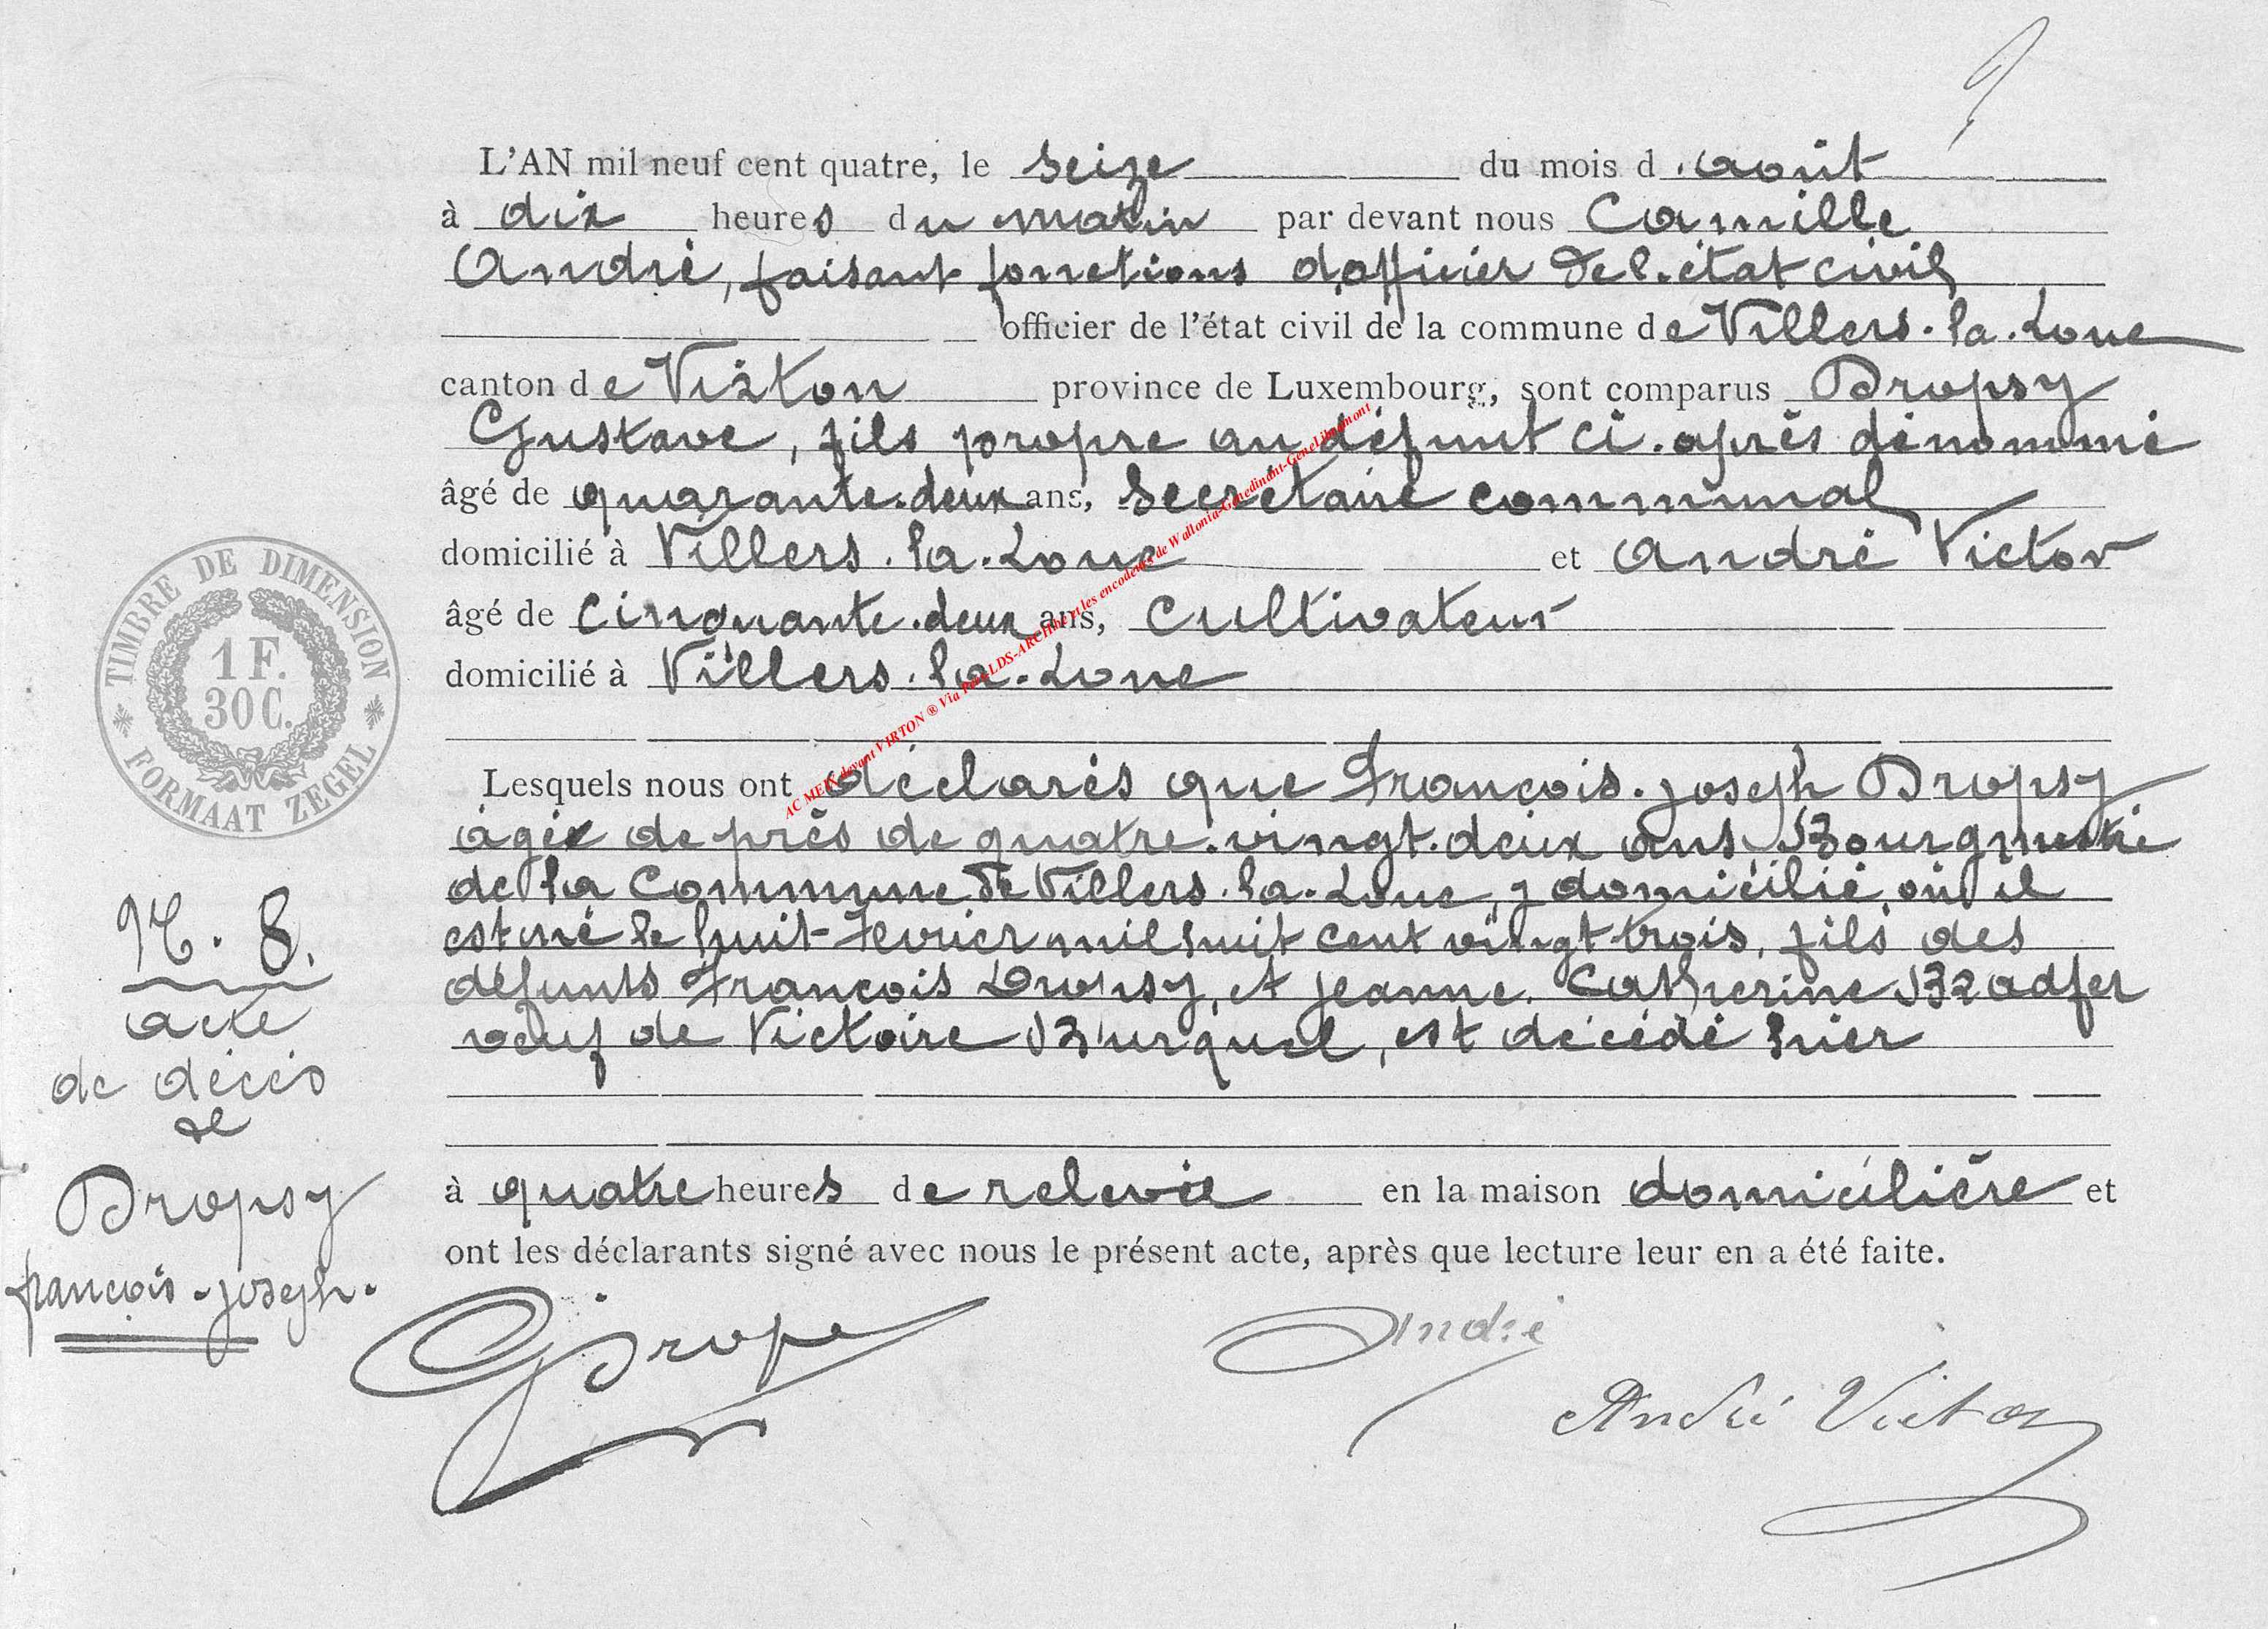 L'AN mil neuf cent quatre, le seize du mois d'août
à dix heures du matin par devant nous Camille
André, faisant fonctions d'officier de l'état civil
officier de l'état civil de la commune de Villers-la-Loue
canton de Virton province de Luxembourg, sont comparus Dropsy
Gustave, fils propre au défunt ci-après dénommé
âgé de quarante-deux ans, secrétaire communal
domicilié à Villers-la-Loue et André Victor
âgé de cinquante-deux ans, cultivateur
domicilié à Villers-la-Loue
Lesquels nous ont déclarés que François-joseph Dropsy
âgé de près de quatre-vingt-deux ans, Bourgmestre
de la Commune de Villers-la-Loue, y domicilié, où il
est né le huit Février mil huit cent vingt trois, fils des
défunts François Dropsy, et jeanne-Catherine Bradfer
veuf de Victoire Burquel, est décédé hier
à quatre heures de relevée en la maison domicilière et
ont les déclarants signé avec nous le présent acte, après que lecture leur en a été faite.
GDrops
André
André Victor
TIMBRE DE DIMENSION
1 F.
30 C.
FORMAAT ZEGEL
N. 8.
acte
de décès
de
Dropsy
françois-joseph.
AC MEIX devant VIRTON ® Via LDS-ARCH et les encodeurs de Wallonia-Genedinant-GeneLibramont